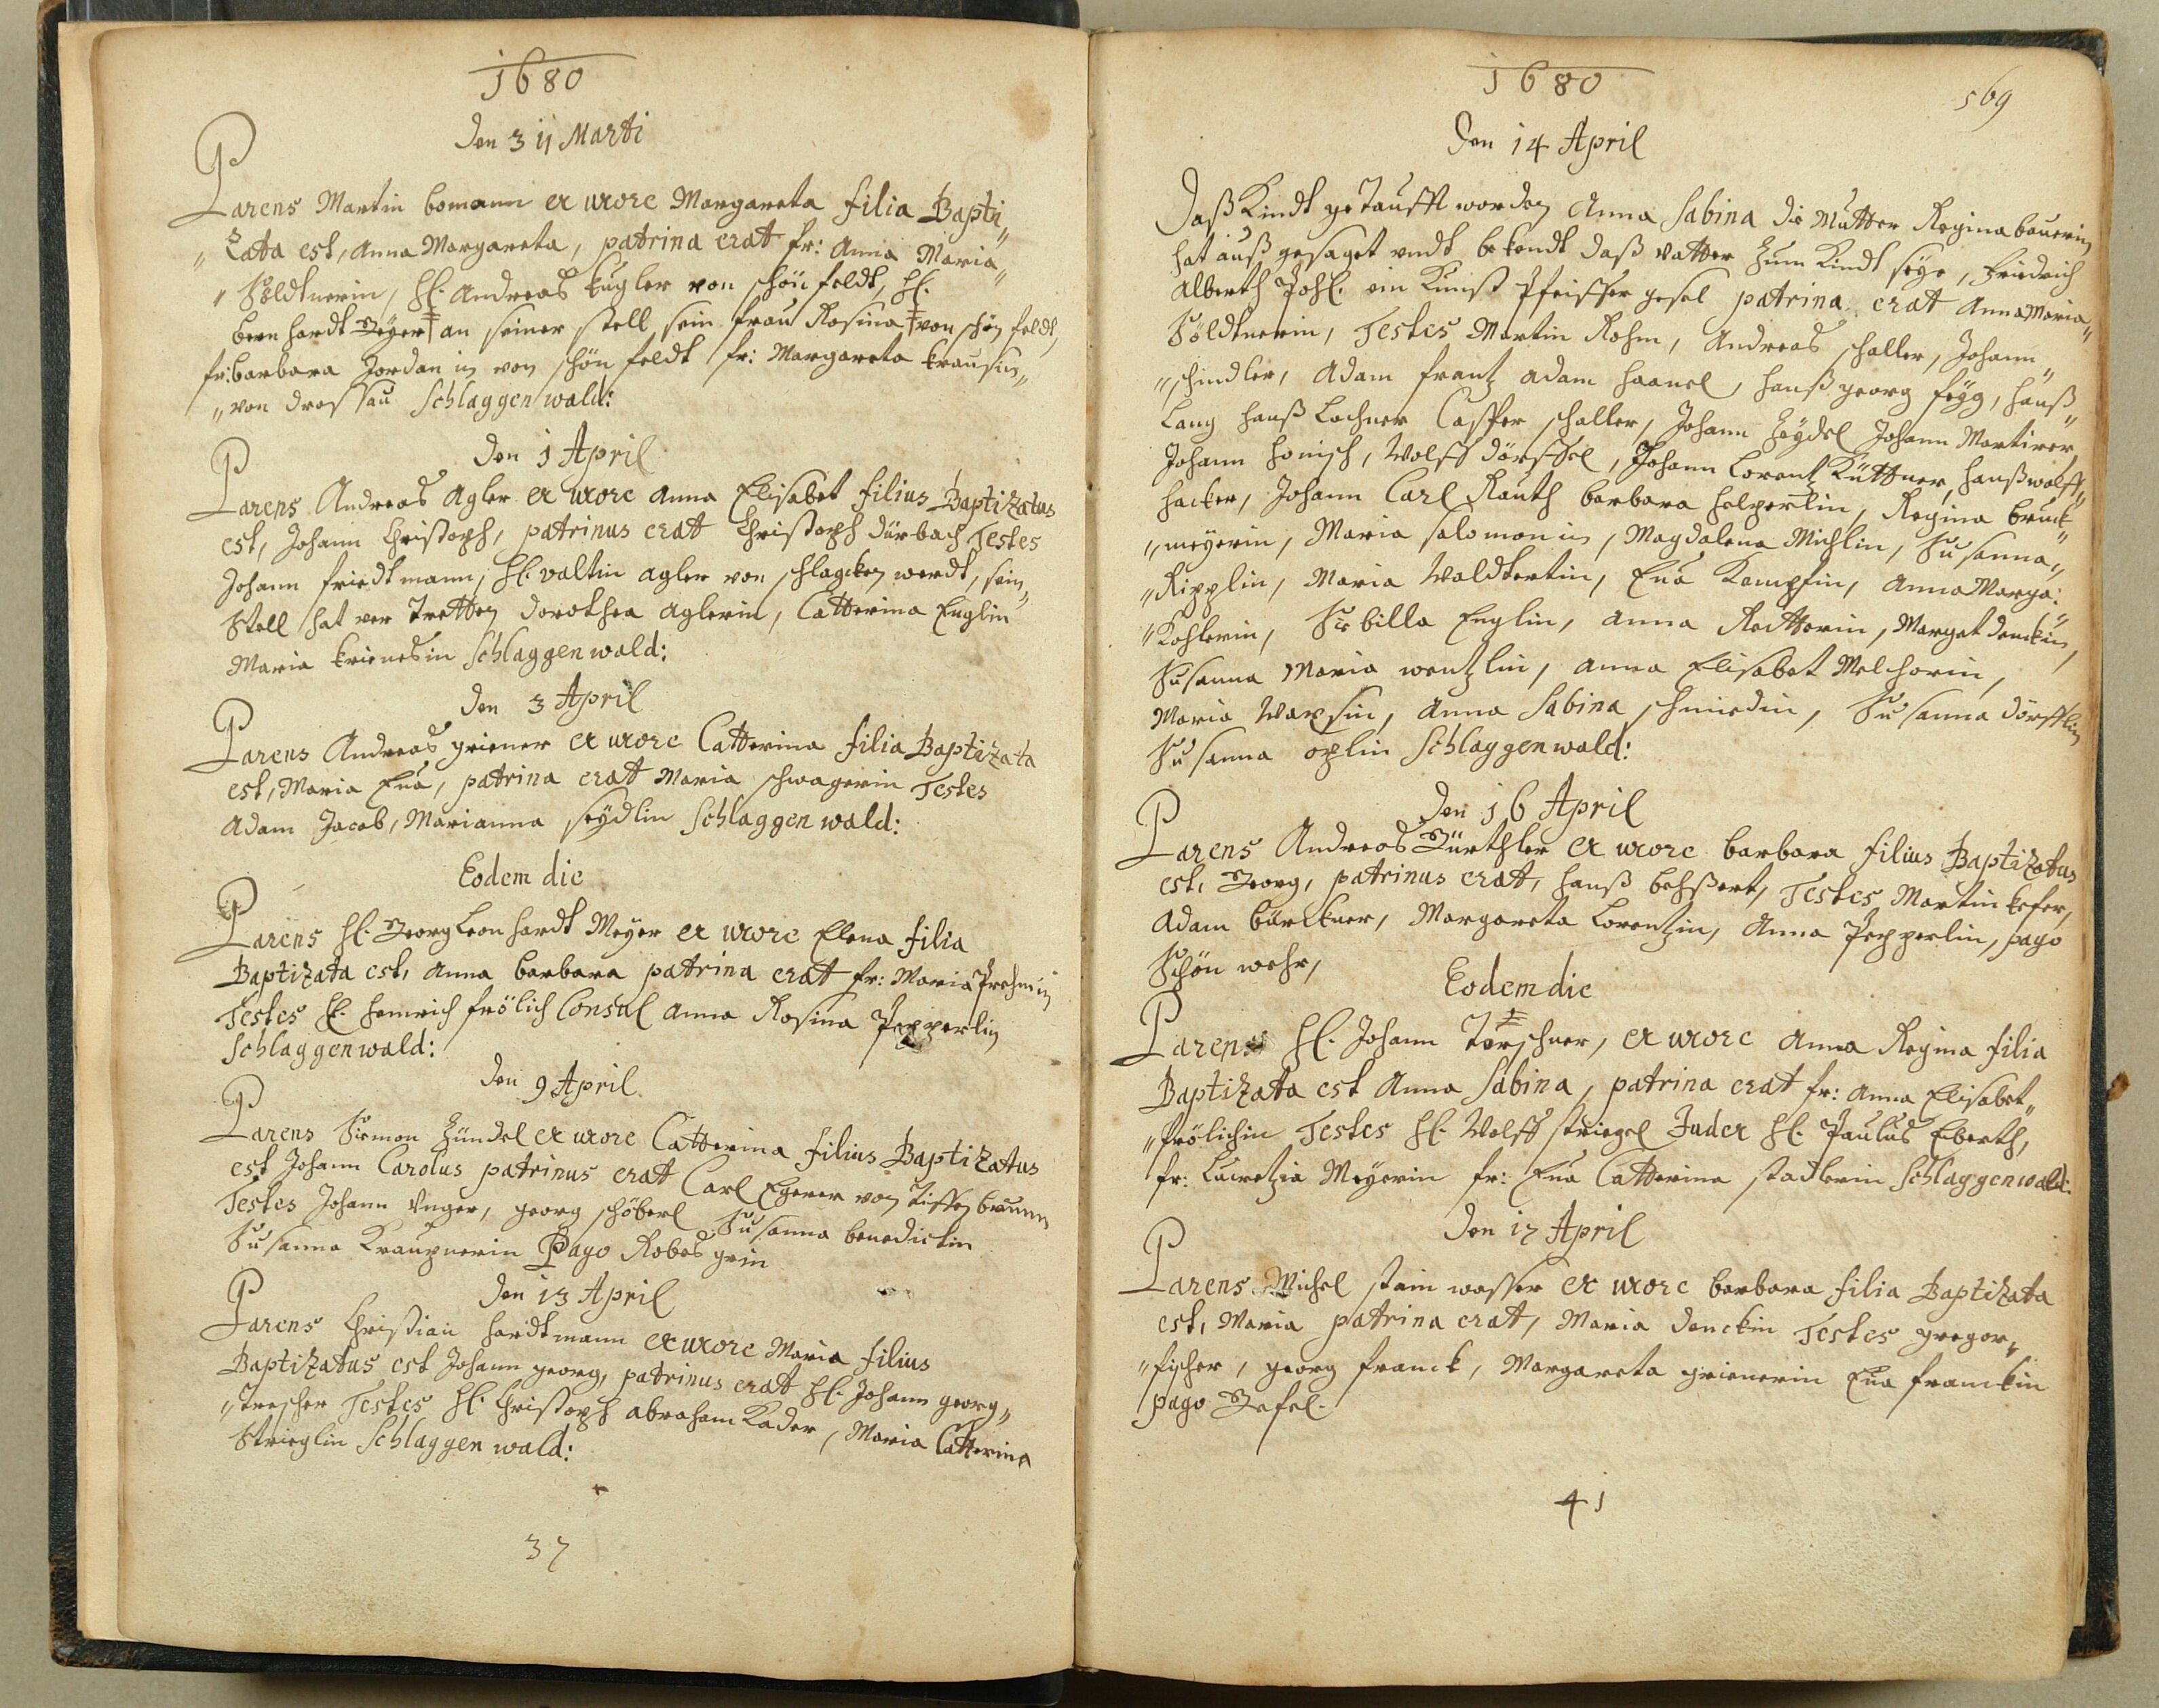 1680
den 31 Marti
Parens Martin bomann ex uxore Margareta filia Bapti„
„Zata est, Anna Margareta, patrina erat fr: Anna Maria„
„Söldtnerin, H. Andreas Kugler von schönfeldt, H.
bernhardt Zeÿer ‡ an seiner stell, sein frau Rosina ‡ von schön feldt,
fr: barbara Jordan in von schön feldt fr: Margareta krausin„
„von drossau Schlaggenwald:
den 1 April
Parens Andreas agler ex uxore Anna Elisabet filius Baptizatus
est, Johann Christoph, patrinus erat Christoph dürbach Testes
Johann friedtmann, H. valtin agler von schlagken werdt, sein„
Stell hat ver tretten dorothea aglerin, Catterina Englin
Maria krienesin Schlaggenwald:
den 3 April
Parens Andreas griener ex uxore Catterina filia Baptizata
est, Maria Eua, patrina erat Maria schwagerin Testes
Adam Jacob, Marianna seÿdlin Schlaggenwald:
Eodem die
Parens H. Georg Leonhardt Meÿer ex uxore Elena filia
Baptizata est, anna barbara patrina erat fr: Maria
Testes H. Heinrich frölich Consul anna Rosina Pepperlin
Schlaggenwald:
den 9 April
Parens Siemon Zündel ex uxore Catterina filius Baptizatus
est Johann Carolus patrinus erat Carl Egerer von tiffen brunn
Testes Johann Unger, georg schöberl Susanna benedictin
Susanna Kraupnerin Pago Robes grin
den 13 April
Parens Christian hardtmann ex uxore Maria filius
Baptizatus est Johann georg, patrinus erat H. Johann georg„
„trescher Testes H. Christoph abraham Kader, Maria Catterina
Strieglin Schlaggenwald:
37
1680
569
den 14 April
Daß Kindt getaufft worden Anna Sabina die Mutter Regina bauerin
hat auß gesaget undt bekendt daß vatter Zum Kindt seÿe, Friedrich
Alberth Pohl. ein Kunst Pfeiffer gesel patrina erat Anna Maria„
Söldtnerin, Testes Martin Rohm, Andreas schaller, Johann„
„schindler, Adam frantz adam haanel, hanß georg feÿg, hanß„
Lang hanß Lochner Casper schaller, Johann Heÿdel Johann Martirer,
Johann honisch, Wolff dörffel, Johann Lorentz Küttner, hanß wolff„
hacker, Johann Carl Rauth barbara helperlin, Regina bruck„
„meÿerin, Maria salomonin, Magdalena Michlin, Susanna„
„Ripplin, Maria Waldtertin, Eua Kempfin, Anna Marga:„
„Kohlerin, Siebilla Englin, Anna Reitterin, Marget denckin,
Susanna Maria wentzlin, anna Elisabet Melchorin,
Maria Waxsin, Anna Sabina schmiedin, Susanna dörfflin
Susanna oplin Schlaggenwald:
den 16 April
Parens Andreas Zürthler ex uxore barbara filius Baptizatus
est, Georg, patrinus erat, hanß behßert, Testes Martin kefer,
Adam bärckner, Margareta Lorentzin, Anna Pepperlin, pago
Schön wehr,
Eodem die
Parens H. Johann Törschner, ex uxore Anna Regina filia
Baptizata est Anna Sabina, patrina erat fr: Anna Elisabet„
„frölichin Testes H. Wolff striegel Judex H. Paulus Eberth,
fr: Lucretzia Meÿerin fr: Eua Catterina stadlerin Schlaggenwald:
den 17 April
Parens Michel stain wasser ex uxore barbara filia Baptizata
est, Maria patrina erat, Maria denckin Testes gregor„
„fischer, georg franck, Margareta grienerin Eua franckin
pago Gefel.
41